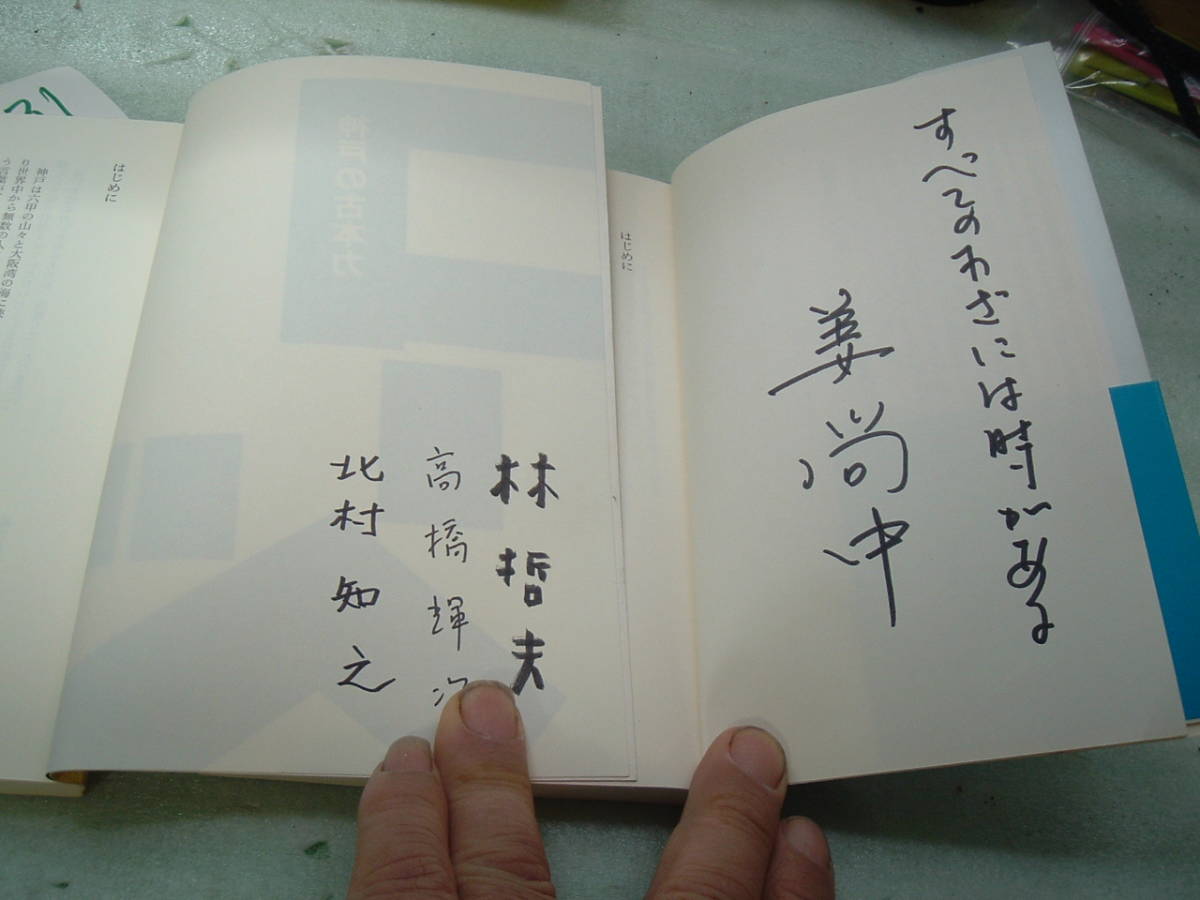 すべてのわざには時がある
姜尚中
はじめに
林哲夫
高橋輝次
北村知之
の古本力
はじめに
神戸は六甲の山々と大阪湾の海に
り世界中から無数の人